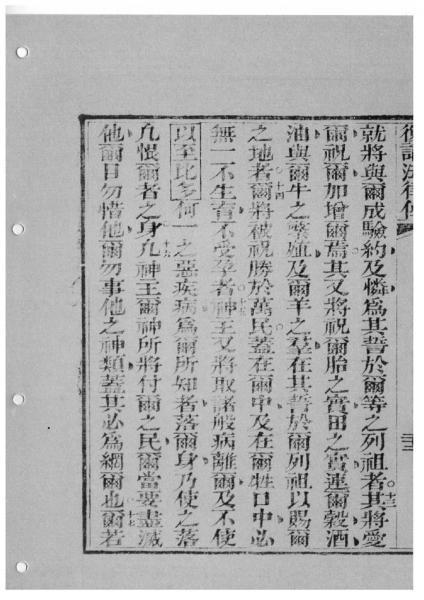 復講法律傳
三
就將與爾成驗約及憐爲其誓於爾等之列祖者。十三其將愛
爾祝爾加增爾焉其又將祝爾胎之實田之實連爾穀酒
油與爾牛之孳殖及爾羊之羣在其誓於爾列祖以賜爾
之地者十四爾將被祝勝於萬民蓋在爾中及在爾牲口中必
無一不生育不受孕者十五神王又將取諸般病離爾及不使
以至比多何一之惡疾病爲爾所知者落爾身乃使之落
凡恨爾者之身十六凡神王爾神所將付爾之民爾當要盡滅
他爾目勿惜他爾勿事他之神類蓋其必爲網爾也十七爾若